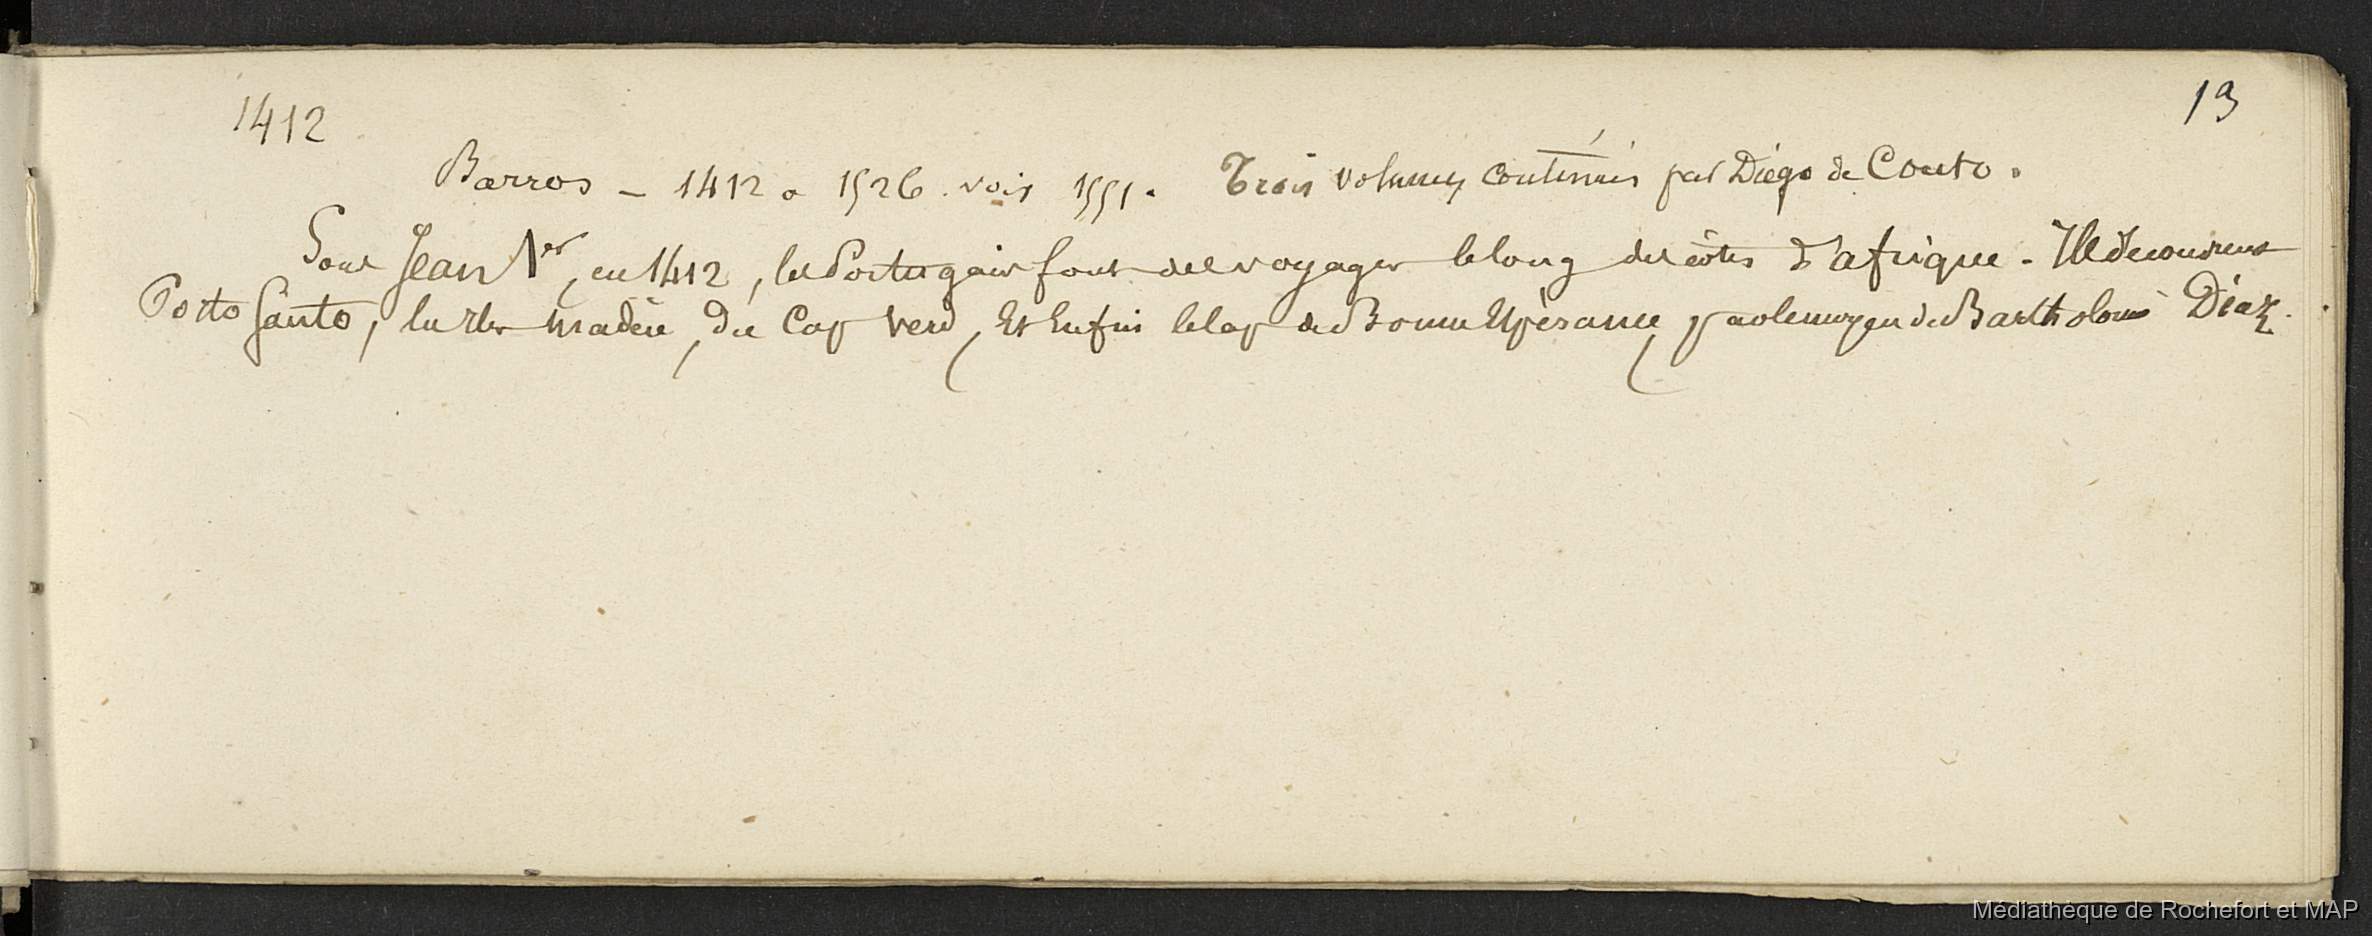 1412
13
Barros – 1412 a 1526. voir 1551. Trois volumes continués par Diégo de Couto.
Sous Jean 1er, en 1412, les Portugais font des voyages le long des côtes d'afrique. Ils decouvrent
Porto Santo, les Iles madère, du Cap Verd, Et Enfin le Cap de Bonne Espérance, par le moyen de Bartholomé Diaz.
Médiathèque de Rochefort et MAP